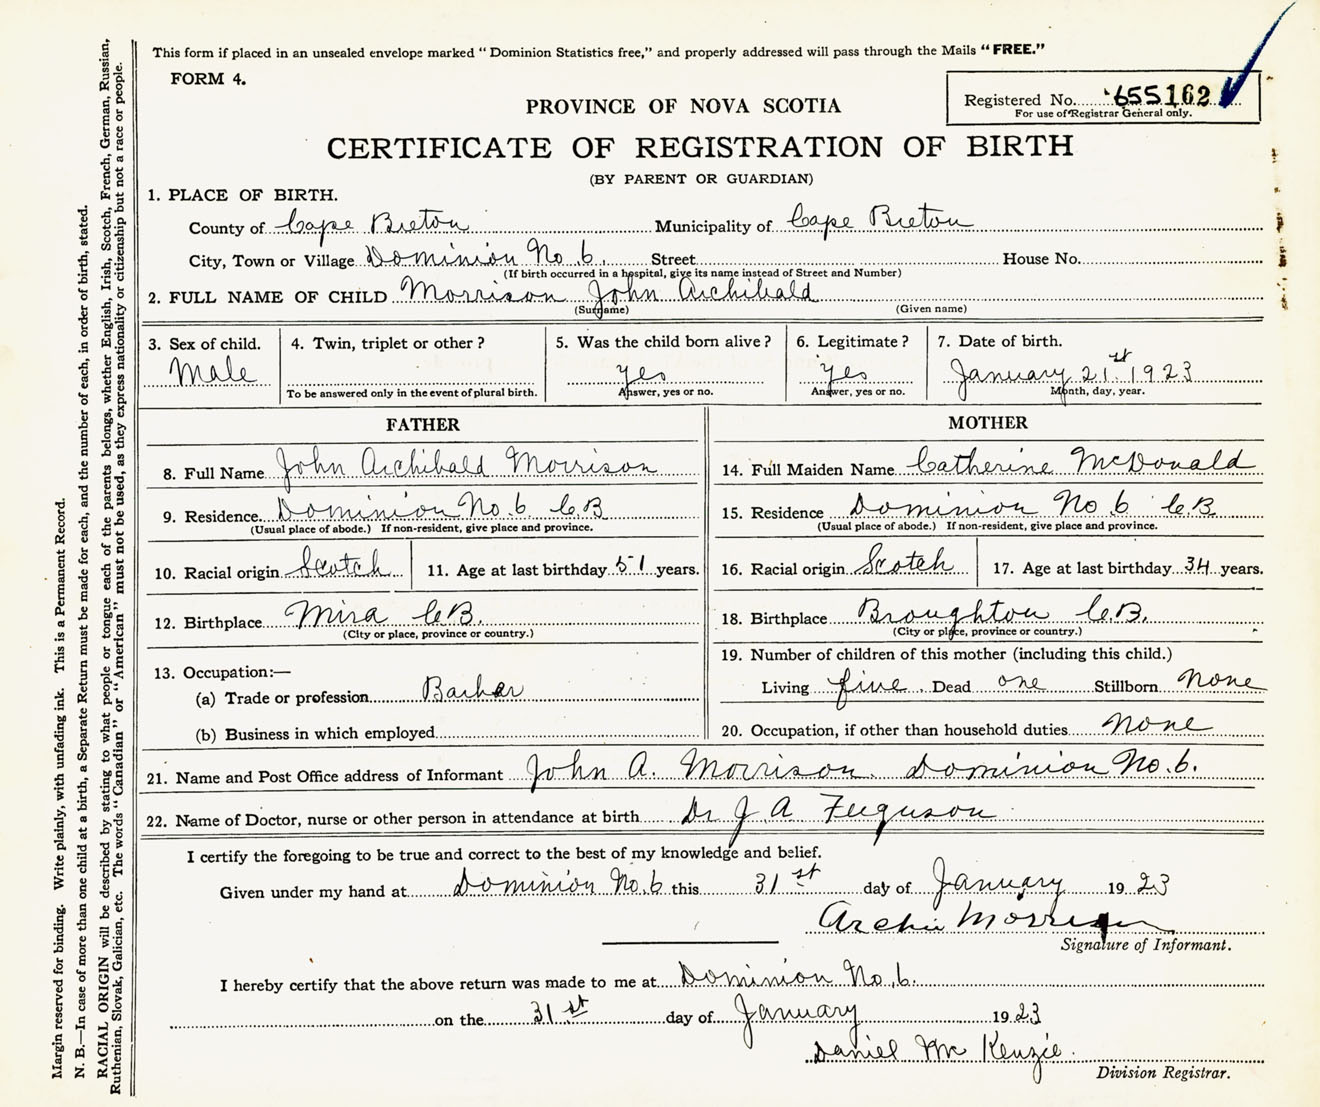 This form if placed in an unsealed envelope marked "Dominion Statistics free," and properly addressed will pass through the Mails "FREE."
FORM 4.
Registered No. 655162
For use of Registrar General only.
PROVINCE OF NOVA SCOTIA
CERTIFICATE OF REGISTRATION OF BIRTH
(BY PARENT OR GUARDIAN)
1. PLACE OF BIRTH.
County of Cape Breton Municipality of Cape Breton
City, Town or Village Dominion No. 6. Street House No.
(If birth occurred in a hospital, give its name instead of Street and Number)
2. FULL NAME OF CHILD Morrison John Archibald
(Surname) (Given name)
3. Sex of child. 4. Twin, triplet or other? 5. Was the child born alive? 6. Legitimate? 7. Date of birth.
Male yes yes January 21st 1923
To be answered only in the event of plural birth. Answer, yes or no. Answer, yes or no. Month, day, year.
FATHER
8. Full Name John Archibald Morrison
9. Residence. Dominion No. 6 C.B
(Usual place of abode.) If non-resident, give place and province.
10. Racial origin Scotch 11. Age at last birthday 51 years.
12. Birthplace Mira C.B.
(City or place, province or country.)
13. Occupation:—
(a) Trade or profession Barber
(b) Business in which employed
MOTHER
14. Full Maiden Name Catherine McDonald
15. Residence Dominion No 6 C.B.
(Usual place of abode.) If non-resident, give place and province.
16. Racial origin Scotch 17. Age at last birthday 34 years.
18. Birthplace Broughton C.B.
(City or place, province or country.)
19. Number of children of this mother (including this child.)
Living five. Dead one Stillborn None
20. Occupation, if other than household duties None
21. Name and Post Office address of Informant John A. Morrison. Dominion No. 6.
22. Name of Doctor, nurse or other person in attendance at birth Dr J A Ferguson
I certify the foregoing to be true and correct to the best of my knowledge and belief.
Given under my hand at Dominion No. 6 this 31st day of January 1923
Archie Morrison
Signature of Informant.
I hereby certify that the above return was made to me at Dominion No. 6.
on the 31st day of January 1923
Daniel McKenzie.
Division Registrar.
Margin reserved for binding. Write plainly, with unfading ink. This is a Permanent Record.
N. B.—In case of more than one child at a birth, a Separate Return must be made for each, and the number of each, in order of birth, stated.
RACIAL ORIGIN will be described by stating to what people or tongue each of the parents belongs, whether English, Irish, Scotch, French, German, Russian,
Ruthenian, Slovak, Galician, etc. The words "Canadian" or "American" must not be used, as they express nationality or citizenship but not a race or people.